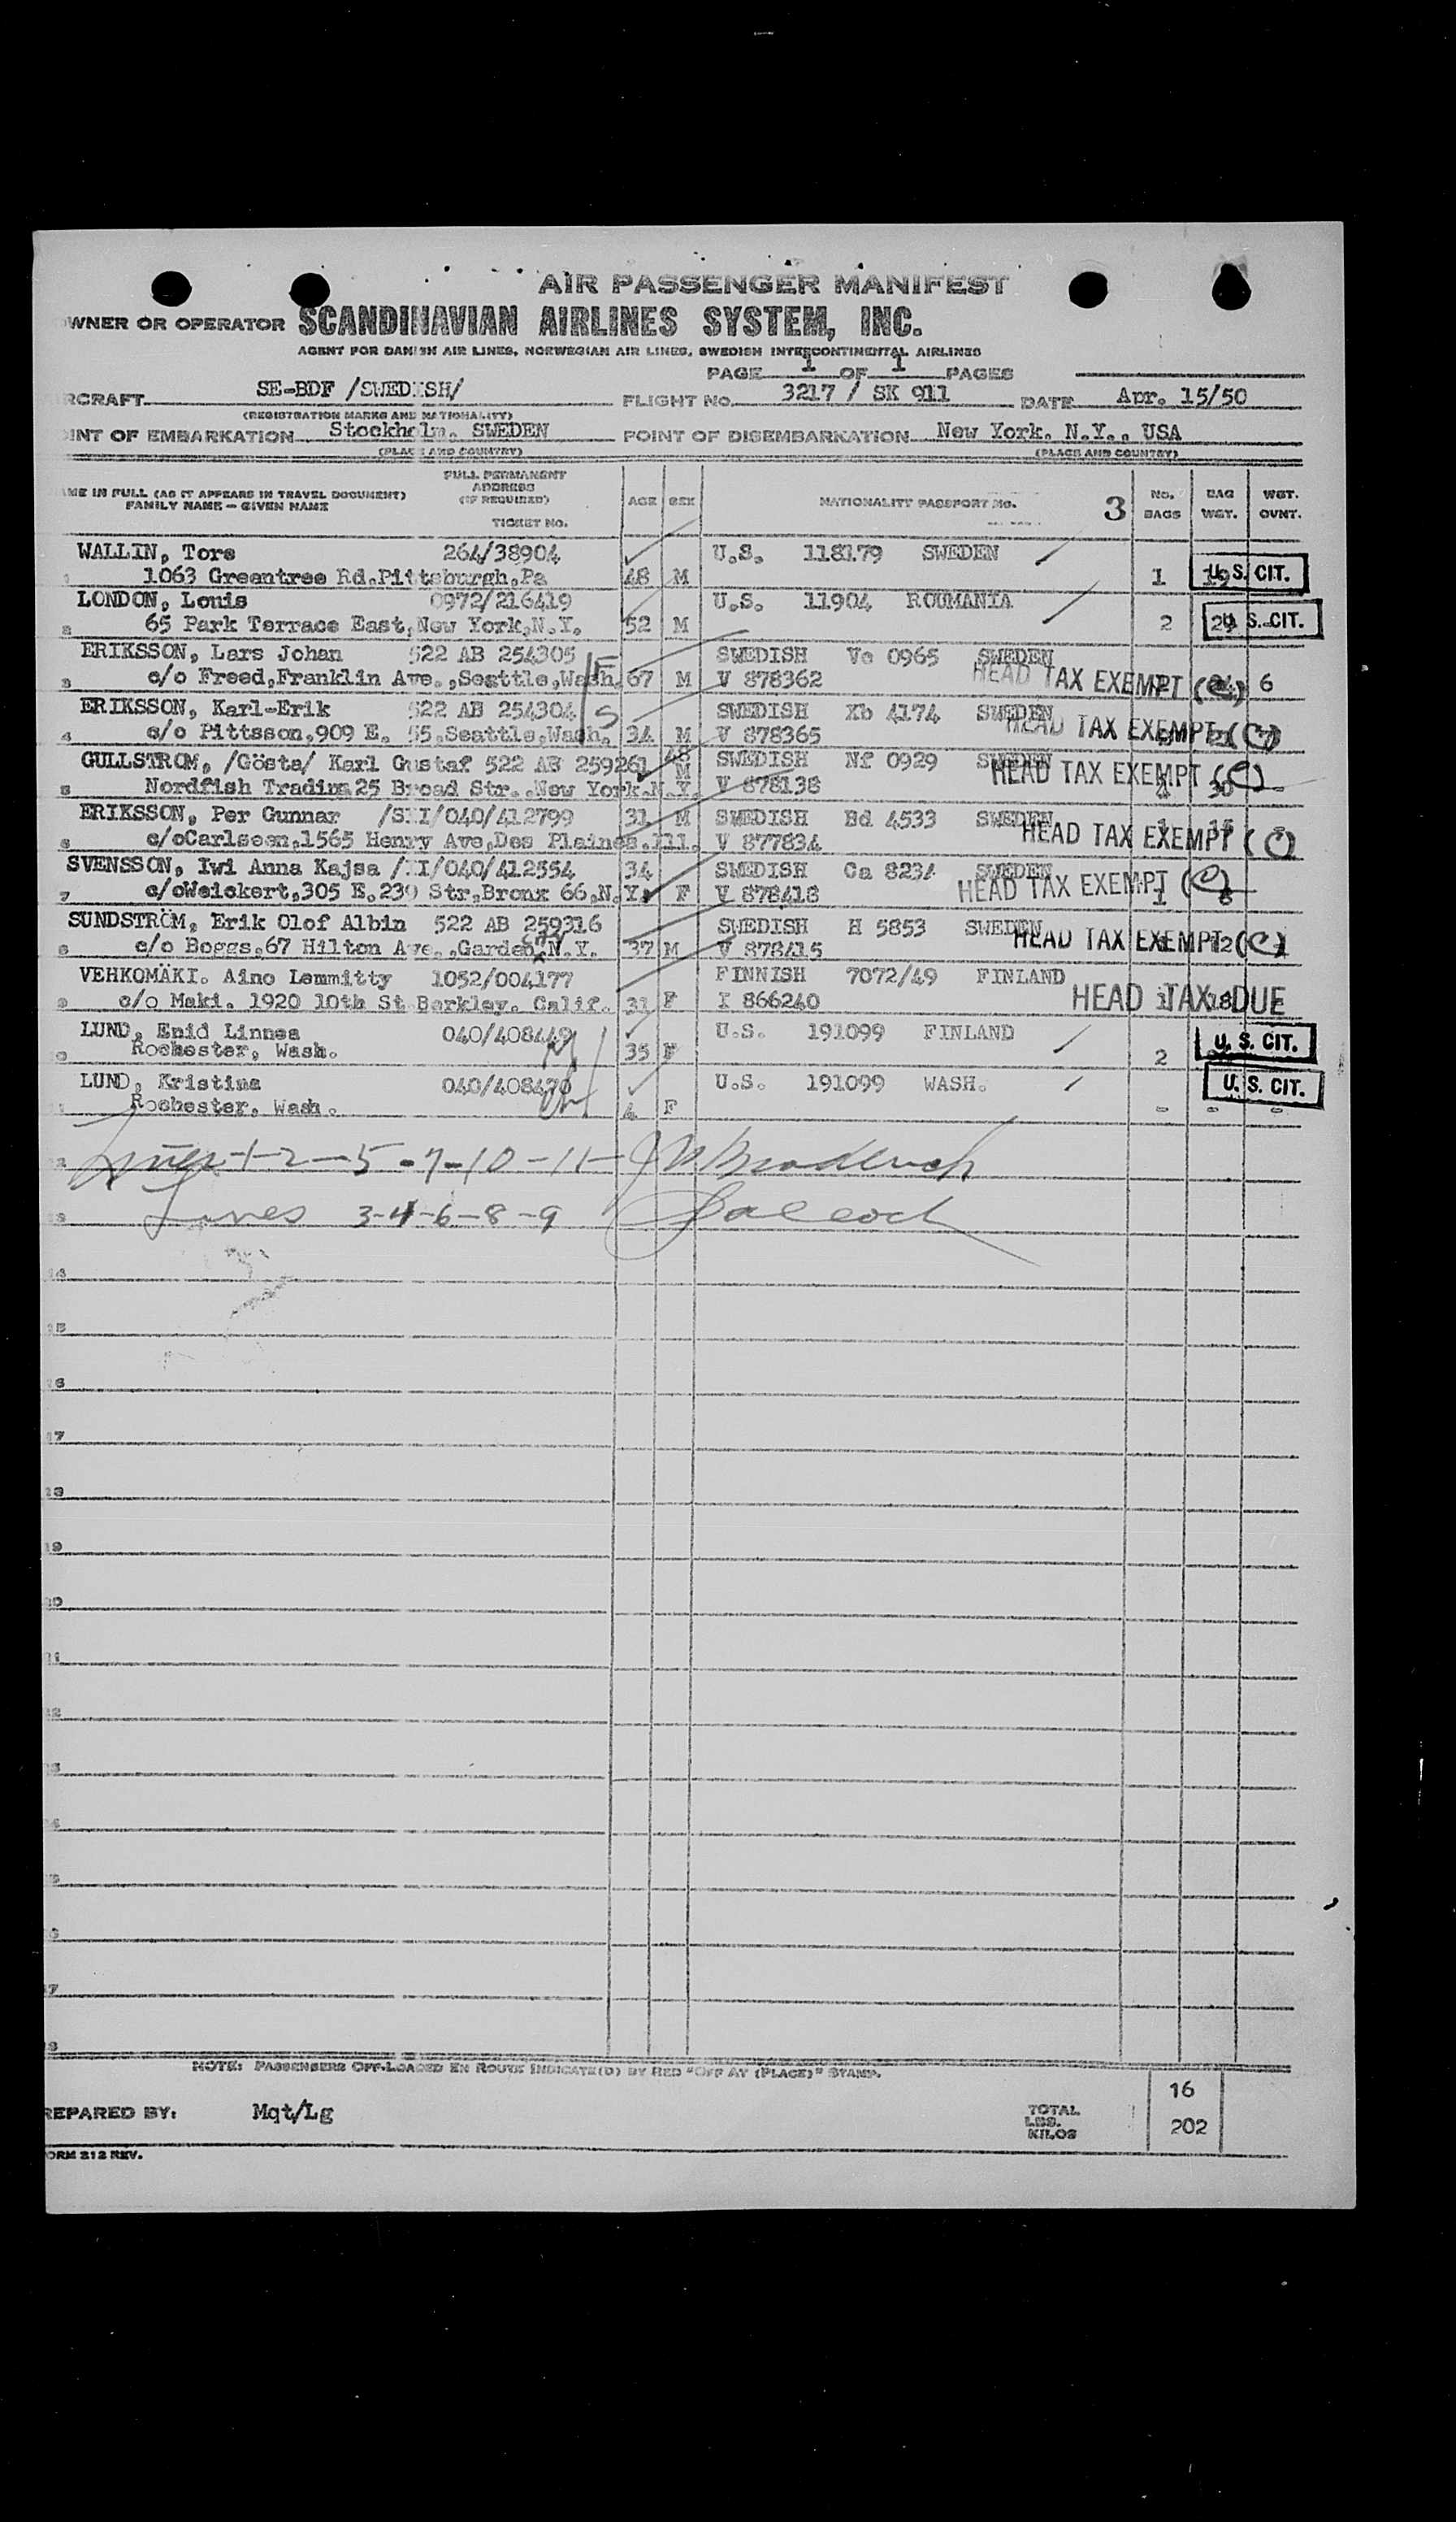 AIR PASSENGER MANIFEST
WNER OR OPERATOR SCANDINAVIAN AIRLINES SYSTEM, INC.
AGENT FOR DANISH AIR LINES, NORWEGIAN AIR LINES, SWEDISH INTERCONTINENTAL AIRLINES
PAGE 1 OF 1 PAGES
IRCRAFT SE-BDF /SWEDISH/ FLIGHT No. 3217 / SK 911 DATE Apr. 15/50
(REGISTRATION MARKS AND NATIONALITY)
OINT OF EMBARKATION Stockholm. SWEDEN POINT OF DISEMBARKATION New York. N.Y.. USA
(PLACE AND COUNTRY) (PLACE AND COUNTRY)
AME IN FULL (AS IT APPEARS IN TRAVEL DOCUMENT) FAMILY NAME - GIVEN NAME FULL PERMANENT ADDRESS (IF REQUIRED) TICKET No. AGE SEX NATIONALITY PASSPORT No. 3 No. BAGS BAG WGT. WGT. OVNT.
WALLIN, Tore 264/38904 U.S. 118179 SWEDEN
1 1063 Greentree Rd.Pittsburgh,Pa 48 M 1 19 U. S. CIT.
LONDON, Louis 0972/216419 U.S. 11904 ROUMANIA
2 65 Park Terrace East,New York,N.Y. 52 M 2 29 U. S. CIT.
ERIKSSON, Lars Johan 522 AB 254305 SWEDISH Ve 0965 SWEDEN
3 c/o Freed,Franklin Ave.,Seattle,Wash. 67 M V 878362 HEAD TAX EXEMPT (C) 6
ERIKSSON, Karl-Erik 522 AB 254304 SWEDISH Xb 4174 SWEDEN
4 c/o Pittsson,909 E. 55.Seattle,Wash. 34 M V 878365 HEAD TAX EXEMPT (C)
GULLSTROM, /Gösta/ Karl Gustaf 522 AB 259261 48 M SWEDISH Nf 0929 SWEDEN
5 Nordfish Trading 25 Broad Str..New York.N.Y. V 878138 HEAD TAX EXEMPT (C) 30
ERIKSSON, Per Gunnar /SXI/040/412799 31 M SWEDISH Bd 4533 SWEDEN
6 c/oCarlseen,1565 Henry Ave,Des Plaines.Ill. V 877834 HEAD TAX EXEMPT (C)
SVENSSON, Iwi Anna Kajsa /XI/040/412554 34 SWEDISH Ca 8234 SWEDEN
7 c/oWeickert,305 E.239 Str,Bronx 66,N.Y. F V 878418 HEAD TAX EXEMPT (C) 1 8
SUNDSTRÖM, Erik Olof Albin 522 AB 259316 SWEDISH H 5853 SWEDEN
8 c/o Boggs,67 Hilton Ave.,Garden City N.Y. 37 M V 878415 HEAD TAX EXEMPT (C)
VEHKOMÄKI. Aino Lemmitty 1052/004177 FINNISH 7072/49 FINLAND
9 c/o Maki. 1920 10th St Berkley. Calif. 31 F I 866240 HEAD TAX DUE 1 18
LUND, Enid Linnea 040/408449 U.S. 191099 FINLAND
10 Rochester, Wash. 35 F 2 U. S. CIT.
LUND, Kristina 040/408470 U.S. 191099 WASH.
11 Rochester. Wash. 4 F - - - U. S. CIT.
12 Lines 1-2-5-7-10-11-
13 Lines 3-4-6-8-9
14
15
16
17
18
19
20
21
22
23
24
25
26
27
28
NOTE: PASSENGERS OFF-LOADED EN ROUTE INDICATE(D) BY RED "OFF AT (PLACE)" STAMP.
REPARED BY: Mqt/Lg TOTAL LBS. KILOS 16 202
ORM 212 REV.